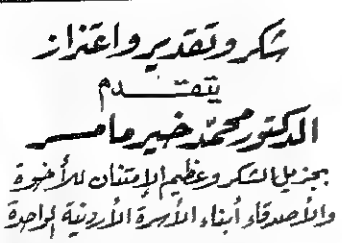 شكر وتقدير واعتزاز
يتقدم
الدكتور محمد خير مامسر
بجزيل الشكر وعظيم الإمتنان للأخوة
والأصدقاء أبناء الأسرة الأردنية الواحدة